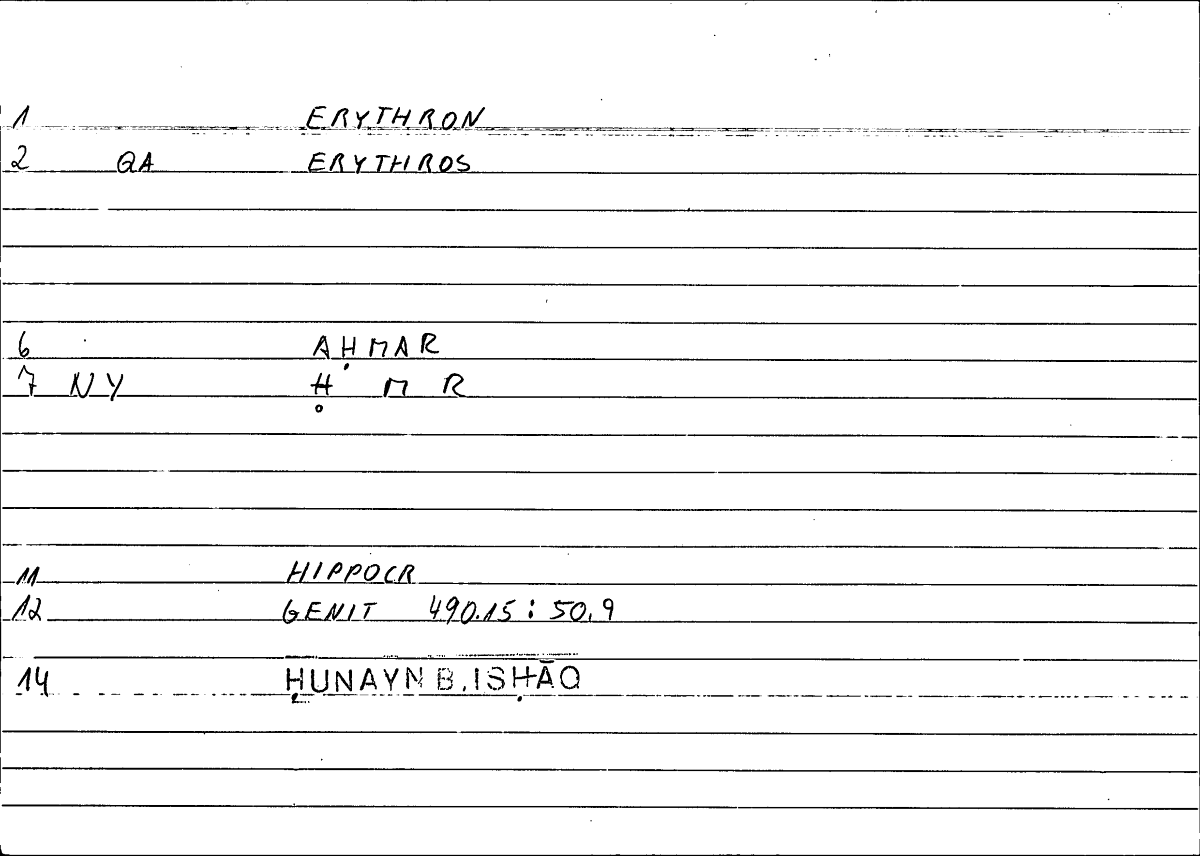 1 ERYTHRON
2 QA ERYTHROS
6 AḤMAR
7 NY Ḥ M R
11 HIPPOCR
12 GENIT 490.15 : 50,9
14 ḤUNAYN B. ISḤĀQ